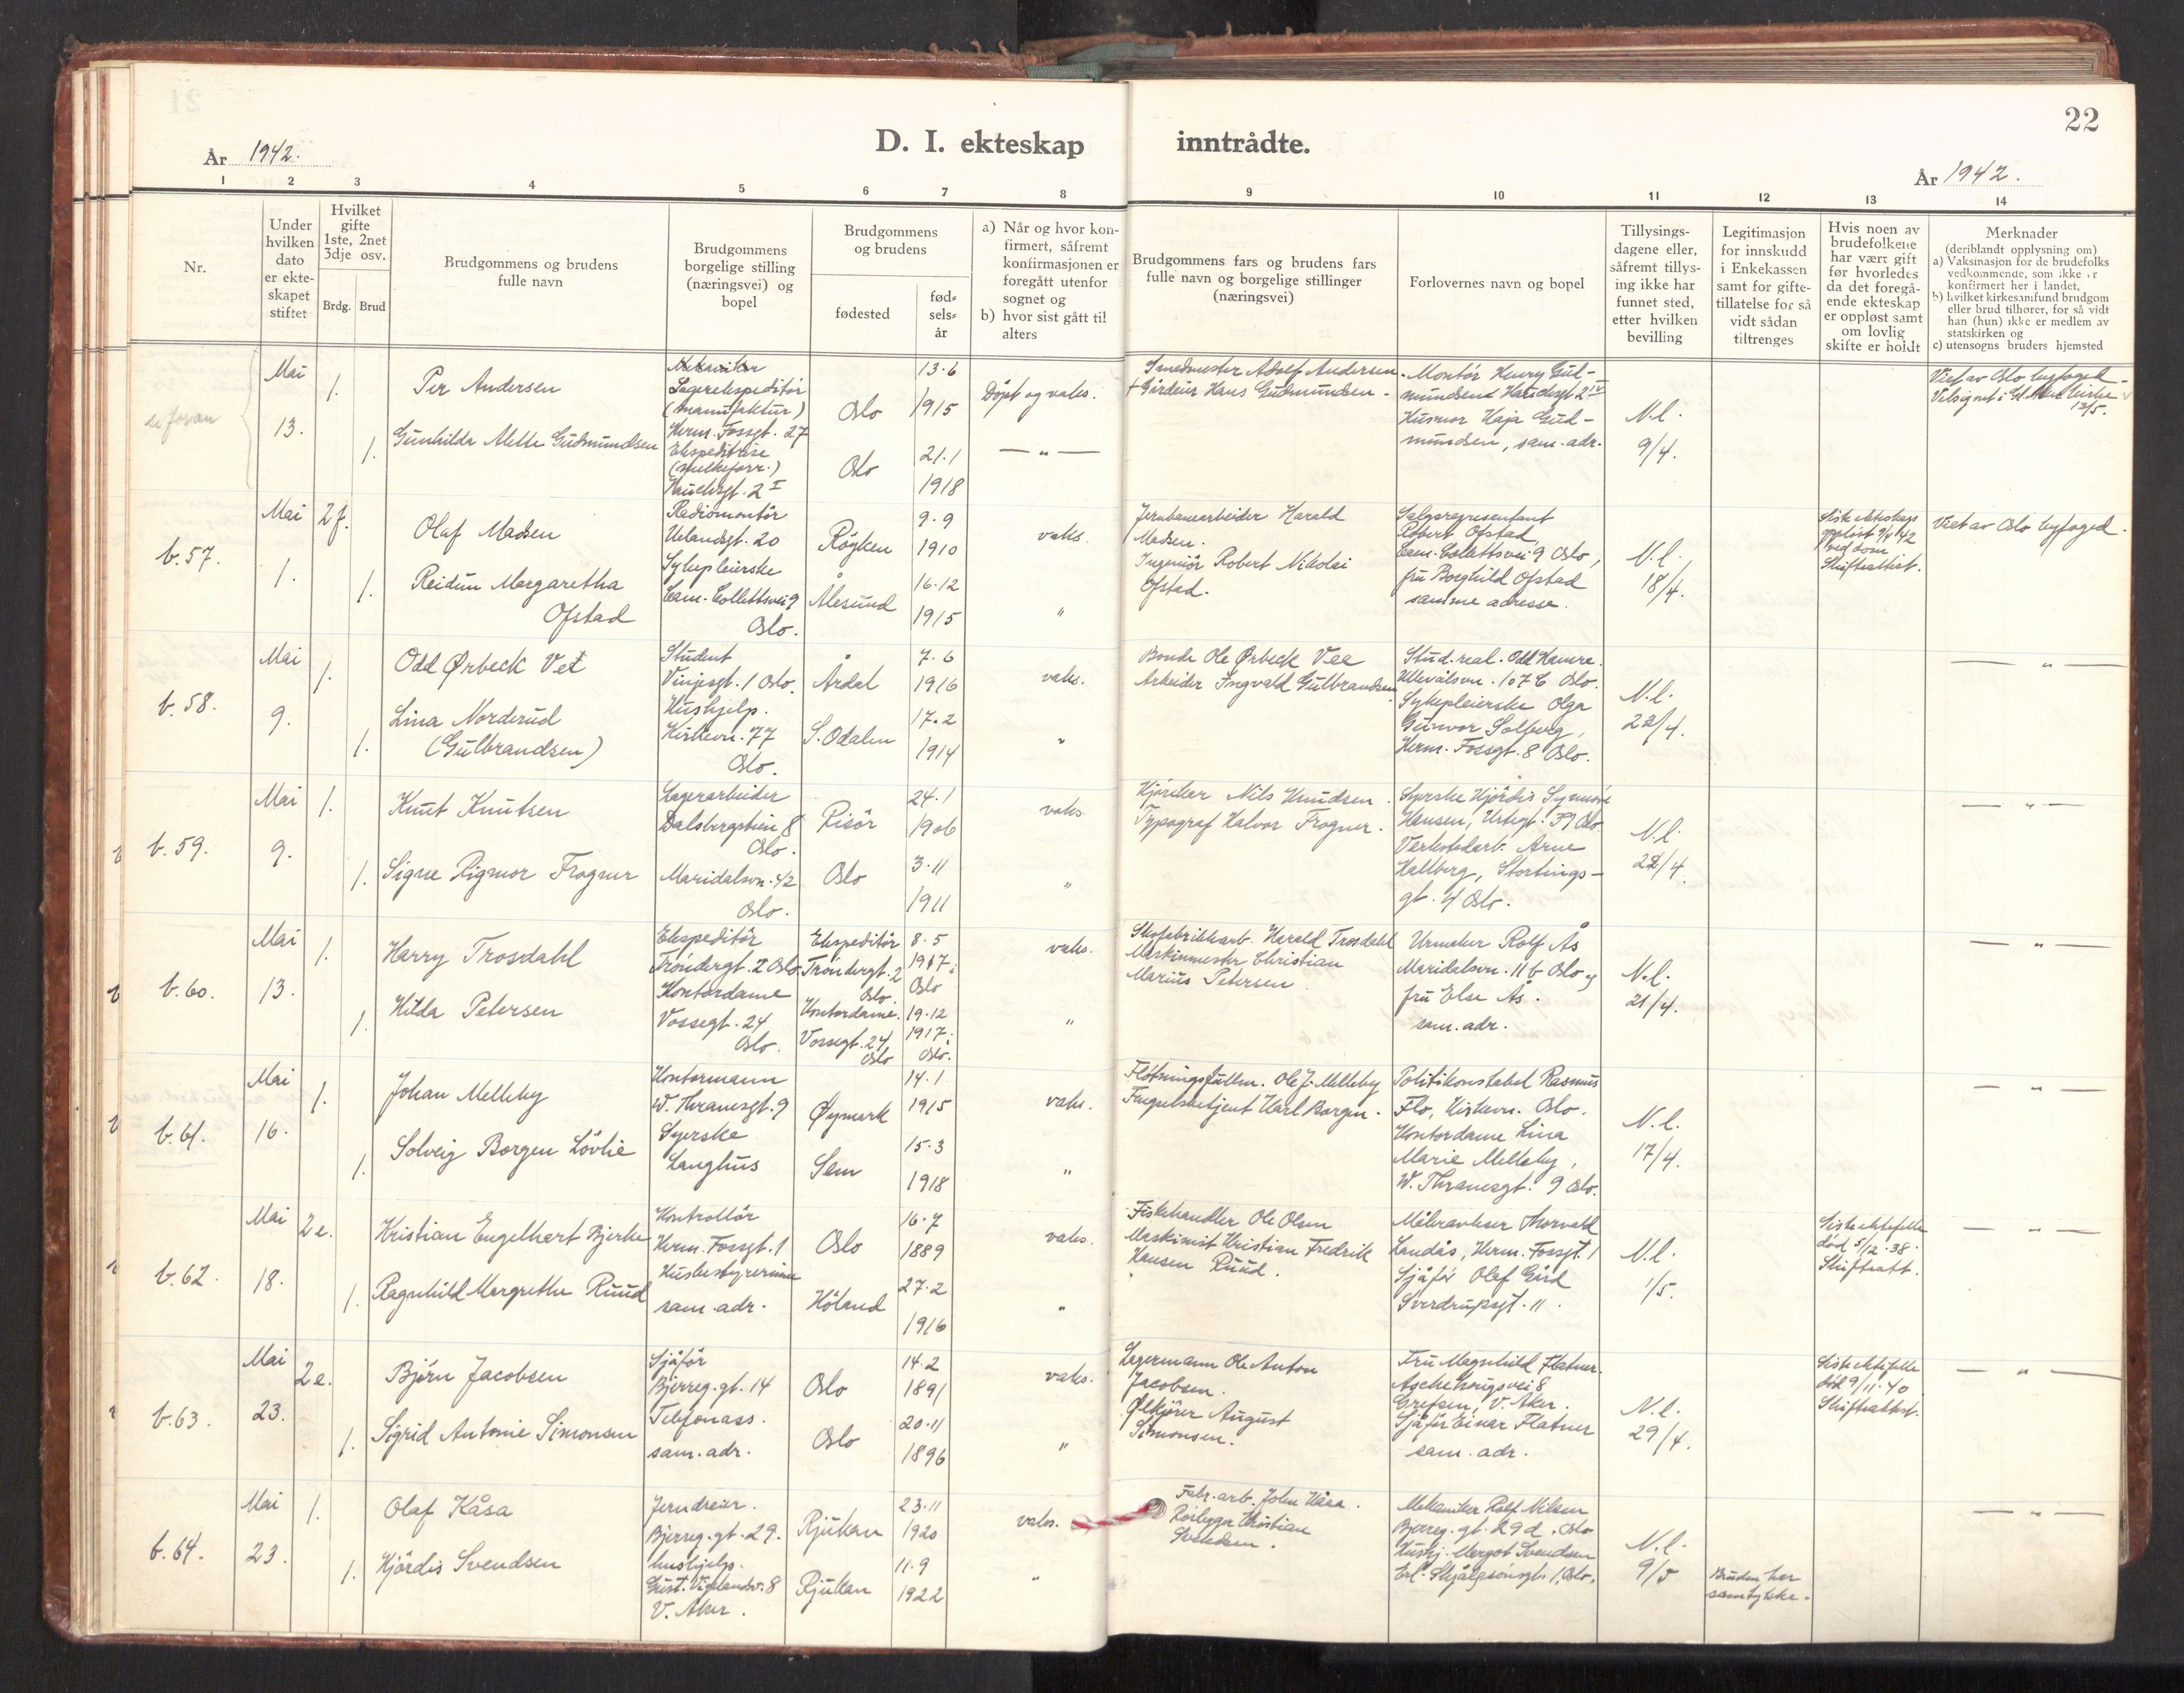 22
År 1942.
D. I. ekteskap inntrådte.
År 1942.
1 2 3 4 5 6 7 8 9 10 11 12 13 14
Nr.
Under hvilken dato er ekte-skapet stiftet
Hvilket gifte 1ste, 2net 3dje osv.
Brdg. Brud
Brudgommens og brudens fulle navn
Brudgommens borgelige stilling (næringsvei) og bopel
Brudgommens og brudens
fødested
fød-sels-år
a) Når og hvor kon-firmert, såfremt konfirmasjonen er foregått utenfor sognet og
b) hvor sist gått til alters
Brudgommens fars og brudens fars fulle navn og borgelige stillinger (næringsvei)
Forlovernes navn og bopel
Tillysings-dagene eller, såfremt tillys-ing ikke har funnet sted, etter hvilken bevilling
Legitimasjon for innskudd i Enkekassen samt for gifte-tillatelse for så vidt sådan tiltrenges
Hvis noen av brudefolkene har vært gift før hvorledes da det foregå-ende ekteskap er oppløst samt om lovlig skifte er holdt
Merknader
(deriblandt opplysning om)
a) Vaksinasjon for de brudefolks vedkommende, som ikke er konfirmert her i landet,
b) hvilket kirkesamfund brudgom eller brud tilhører, for så vidt han (hun) ikke er medlem av statskirken og
c) utensogns bruders hjemsted
Mai
13.
1.
Per Andersen
1.
Gunhilda Alette Gudmundsen
Lagerekspeditör
(manufaktur)
Herm. Fossgt. 27
Ekspeditrise
Hauchsgt. 2 I
Oslo
13.6
1915
Oslo
21.1
1918
Döpt og vaks.
— " —
Smedmester Adolf Andersen.
+ Gårdeier Hans Gudmundsen.
Montör Henry Gud-
mundsen Hauchsgt 2 IV
Husmor Kaja Gud-
mundsen, sam. adr.
N.l.
9/4.
Viet av Oslo byfoged.
Velsignet i Gl. Aker kirke
13/5.
b. 57.
Mai
1.
2 f.
Olaf Madsen
1.
Reidun Margaretha
Ofstad
Radiomontör
Uelandsgt. 20
Sykepleierske
Cam. Collettsvei 9
Oslo.
Röyken
9.9
1910
Ålesund
16.12
1915
vaks.
"
Jernbanearbeider Harald
Madsen.
Ingeniör Robert Nikolai
Ofstad.
Salgsrepresentant
Robert Ofstad,
Cam. Collettsvei 9 Oslo,
fru Borghild Ofstad
samme adresse.
N.l.
18/4.
Siste ekteskap
opplöst 9/1 42
ved dom
Skifteattest.
Viet av Oslo byfoged.
b. 58.
Mai
9.
1.
Odd Ørbeck Vee
1.
Lina Norderud
(Gulbrandsen)
Student
Vinjesgt. 1 Oslo.
Hushjelp.
Kirkevn. 77
Oslo.
Årdal
7.6
1916
S. Odalen
17.2
1914
vaks.
"
Bonde Ole Ørbeck Vee
Arbeider Ingvald Gulbrandsen.
Stud. real. Odd Hamre.
Ullevålsvn. 107 C Oslo.
Sykepleierske Olga
Gunvor Solberg,
Herm. Fossgt. 8 Oslo.
N.l.
22/4.
— " —
b. 59.
Mai
9.
1.
Knut Knutsen
1.
Signe Rigmor Frogner
Lagerarbeider
Dalsbergstien 8
Oslo.
Maridalsvn. 42
Oslo.
Risör
24.1
1906
Oslo
3.11
1911
vaks
"
Hjörcker Nils Knudsen.
Typograf Halvor Frogner.
Syerske Hjördis Synnöve
Hansen, Urtegt. 39 Oslo.
Verkstedarb. Arne
Hallberg, Stortings-
gt. 4 Oslo.
N.l.
22/4.
— " —
b. 60.
Mai
13.
1.
Harry Trosdahl
1.
Hilda Petersen
Ekspeditör
Tröndergt. 2 Oslo
Kontordame
Vossegt. 24
Oslo.
Ekspeditör
Tröndergt. 2
Oslo.
Kontordame.
Vossegt. 24
Oslo
8.5
1917 i
Oslo
19.12
1917 i
Oslo.
vaks.
"
Skofabrikkarb. Harald Trosdahl
Maskinmester Christian
Marius Petersen.
Urmaker Rolf Ås
Maridalsvn. 11 b Oslo og
fru Else Ås.
sam. adr.
N.l.
21/4.
— " —
b. 61.
Mai
16.
1.
Johan Melleby
1.
Solveig Borgen Lövlie
Kontormann
W. Thranesgt. 9
Syerske
Langhus
Øymark
14.1
1915
Sem
15.3
1918
vaks.
"
Flötningsfullm. Ole J. Melleby
Fengselsbetjent Karl Borgen.
Politikonstabel Rasmus
Flo, Kirkevn. Oslo.
Kontordame Lina
Marie Melleby,
W. Thranesgt. 9 Oslo.
N.l.
17/4.
— " —
b. 62.
Mai
18.
2 e.
Kristian Engelhart Bjerke
1.
Ragnhild Margrethe Ruud
Kontrollör
Herm. Fossgt. 1
Husbestyrerinne
sam. adr.
Oslo
16.7
1889
Höland
27.2
1916
vaks.
"
Fiskehandler Ole Olsen
Maskinist Kristian Fredrik
Hansen Ruud.
Måleravleser Thorvald
Landås, Herm. Fossgt. 1
Sjåför Olaf Gård
Sverdrupsgt. 11.
N.l.
1/5.
Siste ektefelle
död 5/12.38.
Skifteatt.
— " —
b. 63.
Mai
23.
2 e.
Björn Jacobsen
1.
Sigrid Antonie Simonsen
Sjåför
Bjerreg. gt. 14
Telefonass.
sam. adr.
Oslo
14.2
1891
Oslo
20.11
1896
vaks.
"
Lagermann Ole Anton
Jacobsen.
Ølkjörer August
Simonsen.
Fru Magnhild Flatner.
Aschehougsvei 8
Grefsen, V. Aker.
Sjåför Einar Flatner
sam. adr.
N.l.
29/4.
Siste ektefelle
död 9/11.40
Skifteattest.
— " —
b. 64.
Mai
23.
1.
Olaf Kåsa
1.
Hjördis Svendsen
Jerndreier.
Bjerreg. gt. 29.
hushjelp.
Gust. Vigelandsv. 8
V. Aker.
Rjukan
23.11
1920
Rjukan
11.9
1922
vaks.
"
Fabr. arb. John Kåsa.
Rörlegger Kristian
Svendsen.
Mekaniker Rolf Nilsen
Bjerreg. gt. 29 d. Oslo
Hushj. Margot Svendsen
Erl. Skjalgsönsgt 1, Oslo.
N.l.
9/5
Bruden har
samtykke.
— " —